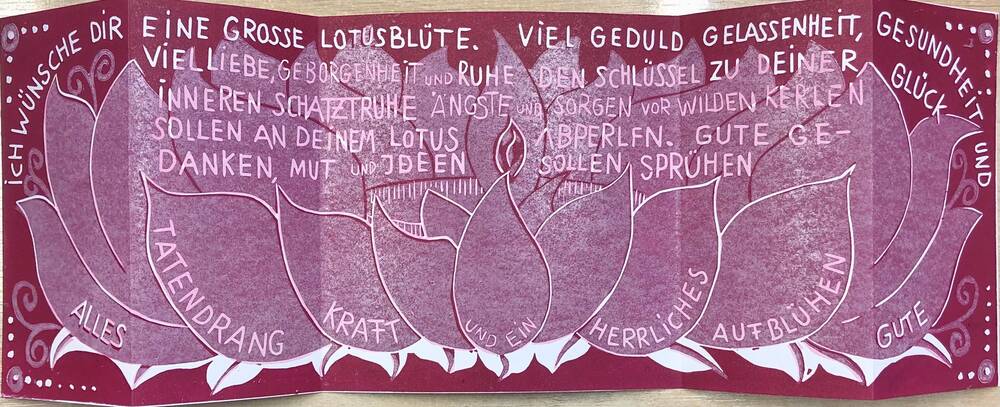 ICH WÜNSCHE DIR EINE GROSSE LOTUSBLÜTE. VIEL GEDULD GELASSENHEIT, GESUNDHEIT UND GLÜCK
VIEL LIEBE, GEBORGENHEIT UND RUHE DEN SCHLÜSSEL ZU DEINER
INNEREN SCHATZTRUHE ÄNGSTE UND SORGEN VOR WILDEN KERLEN
SOLLEN AN DEINEM LOTUS ABPERLEN. GUTE GE-
DANKEN, MUT UND JDEEN SOLLEN SPRÜHEN
TATENDRANG KRAFT UND EIN HERRLICHES AUFBLÜHEN
ALLES GUTE